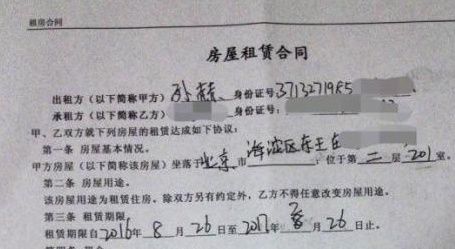 租房合同
房屋租赁合同
出租方（以下简称甲方）孙 身份证号3713271985
承租方（以下简称乙方） 身份证号：
甲、乙双方就下列房屋的租赁达成如下协议：
第一条 房屋基本情况。
甲方房屋（以下简称该房屋）坐落于北京市海淀区东王庄；位于第二层201室。
第二条 房屋用途。
该房屋用途为租赁住房。除双方另有约定外，乙方不得任意改变房屋用途。
第三条 租赁期限
租赁期限自2016年8月26日至2017年8月26日止。